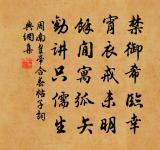 禁御希臨幸
宵衣戒未明
餘閒寓弧矢
勸講只儒生
周南皇帝合春帖子詞
集